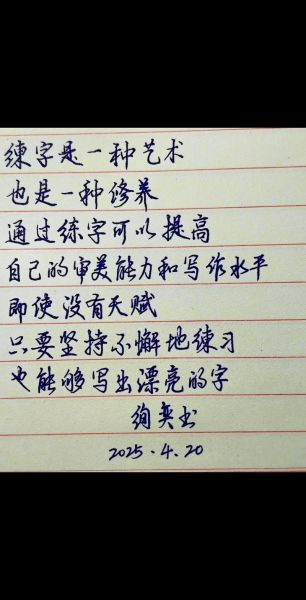 练字是一种艺术
也是一种修养
通过练字可以提高
自己的审美能力和写作水平
即使没有天赋
只要坚持不懈地练习
也能够写出漂亮的字
绚奕书
2025.4.20